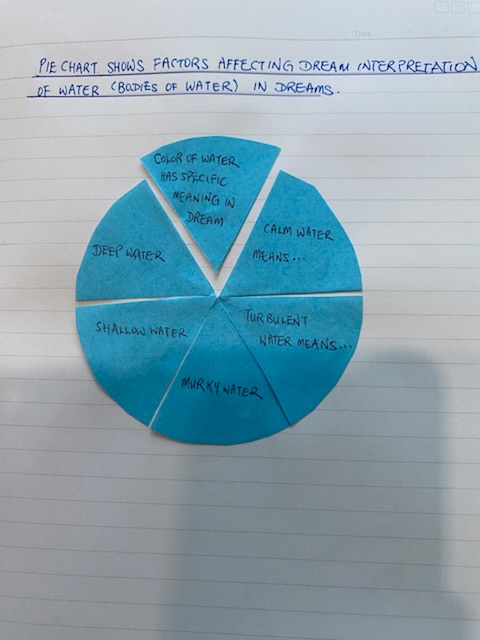 PIE CHART SHOWS FACTORS AFFECTING DREAM INTERPRETATION
OF WATER (BODIES OF WATER) IN DREAMS.
COLOR OF WATER
HAS SPECIFIC
MEANING IN
DREAM
CALM WATER
MEANS...
TURBULENT
WATER MEANS...
MURKY WATER
SHALLOW WATER
DEEP WATER